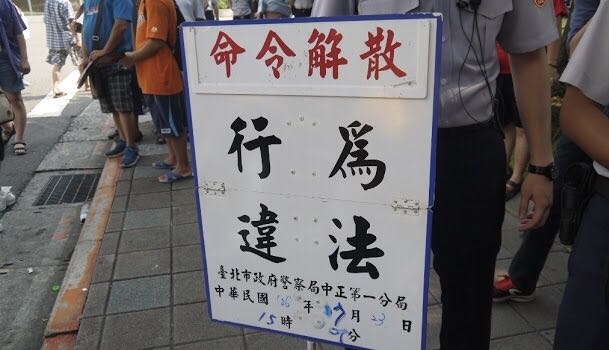 命令解散
行為
違法
臺北市政府警察局中正第一分局
中華民國106年7月23日
15時09分